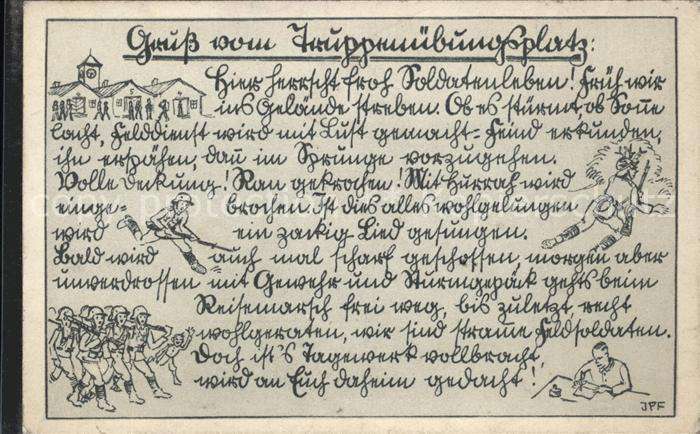 Gruß vom Truppenübungsplatz:
Hier herrscht froh Soldatenleben! Früh wir
ins Gelände streben. Ob es stürmt, ob Soñe
lacht, Felddienst wird mit Lust gemacht - Feind erkunden,
ihn erspähen, dañ im Sprunge vorzugehen.
Volle Deckung! Ran gekrochen! Mit Hurrah wird
einge- brochen. Ist dies alles wohlgelungen
wird ein zackig Lied gesungen.
Bald wird auch mal scharf geschossen, morgen aber
unverdrossen mit Gewehr und Sturmgepäck gehts beim
Reisemarsch frei weg, bis zuletzt, recht
wohlgeraten, wir sind stram̃e Feldsoldaten.
Doch ist's Tagewerk vollbracht,
wird an Euch daheim gedacht!
JPF